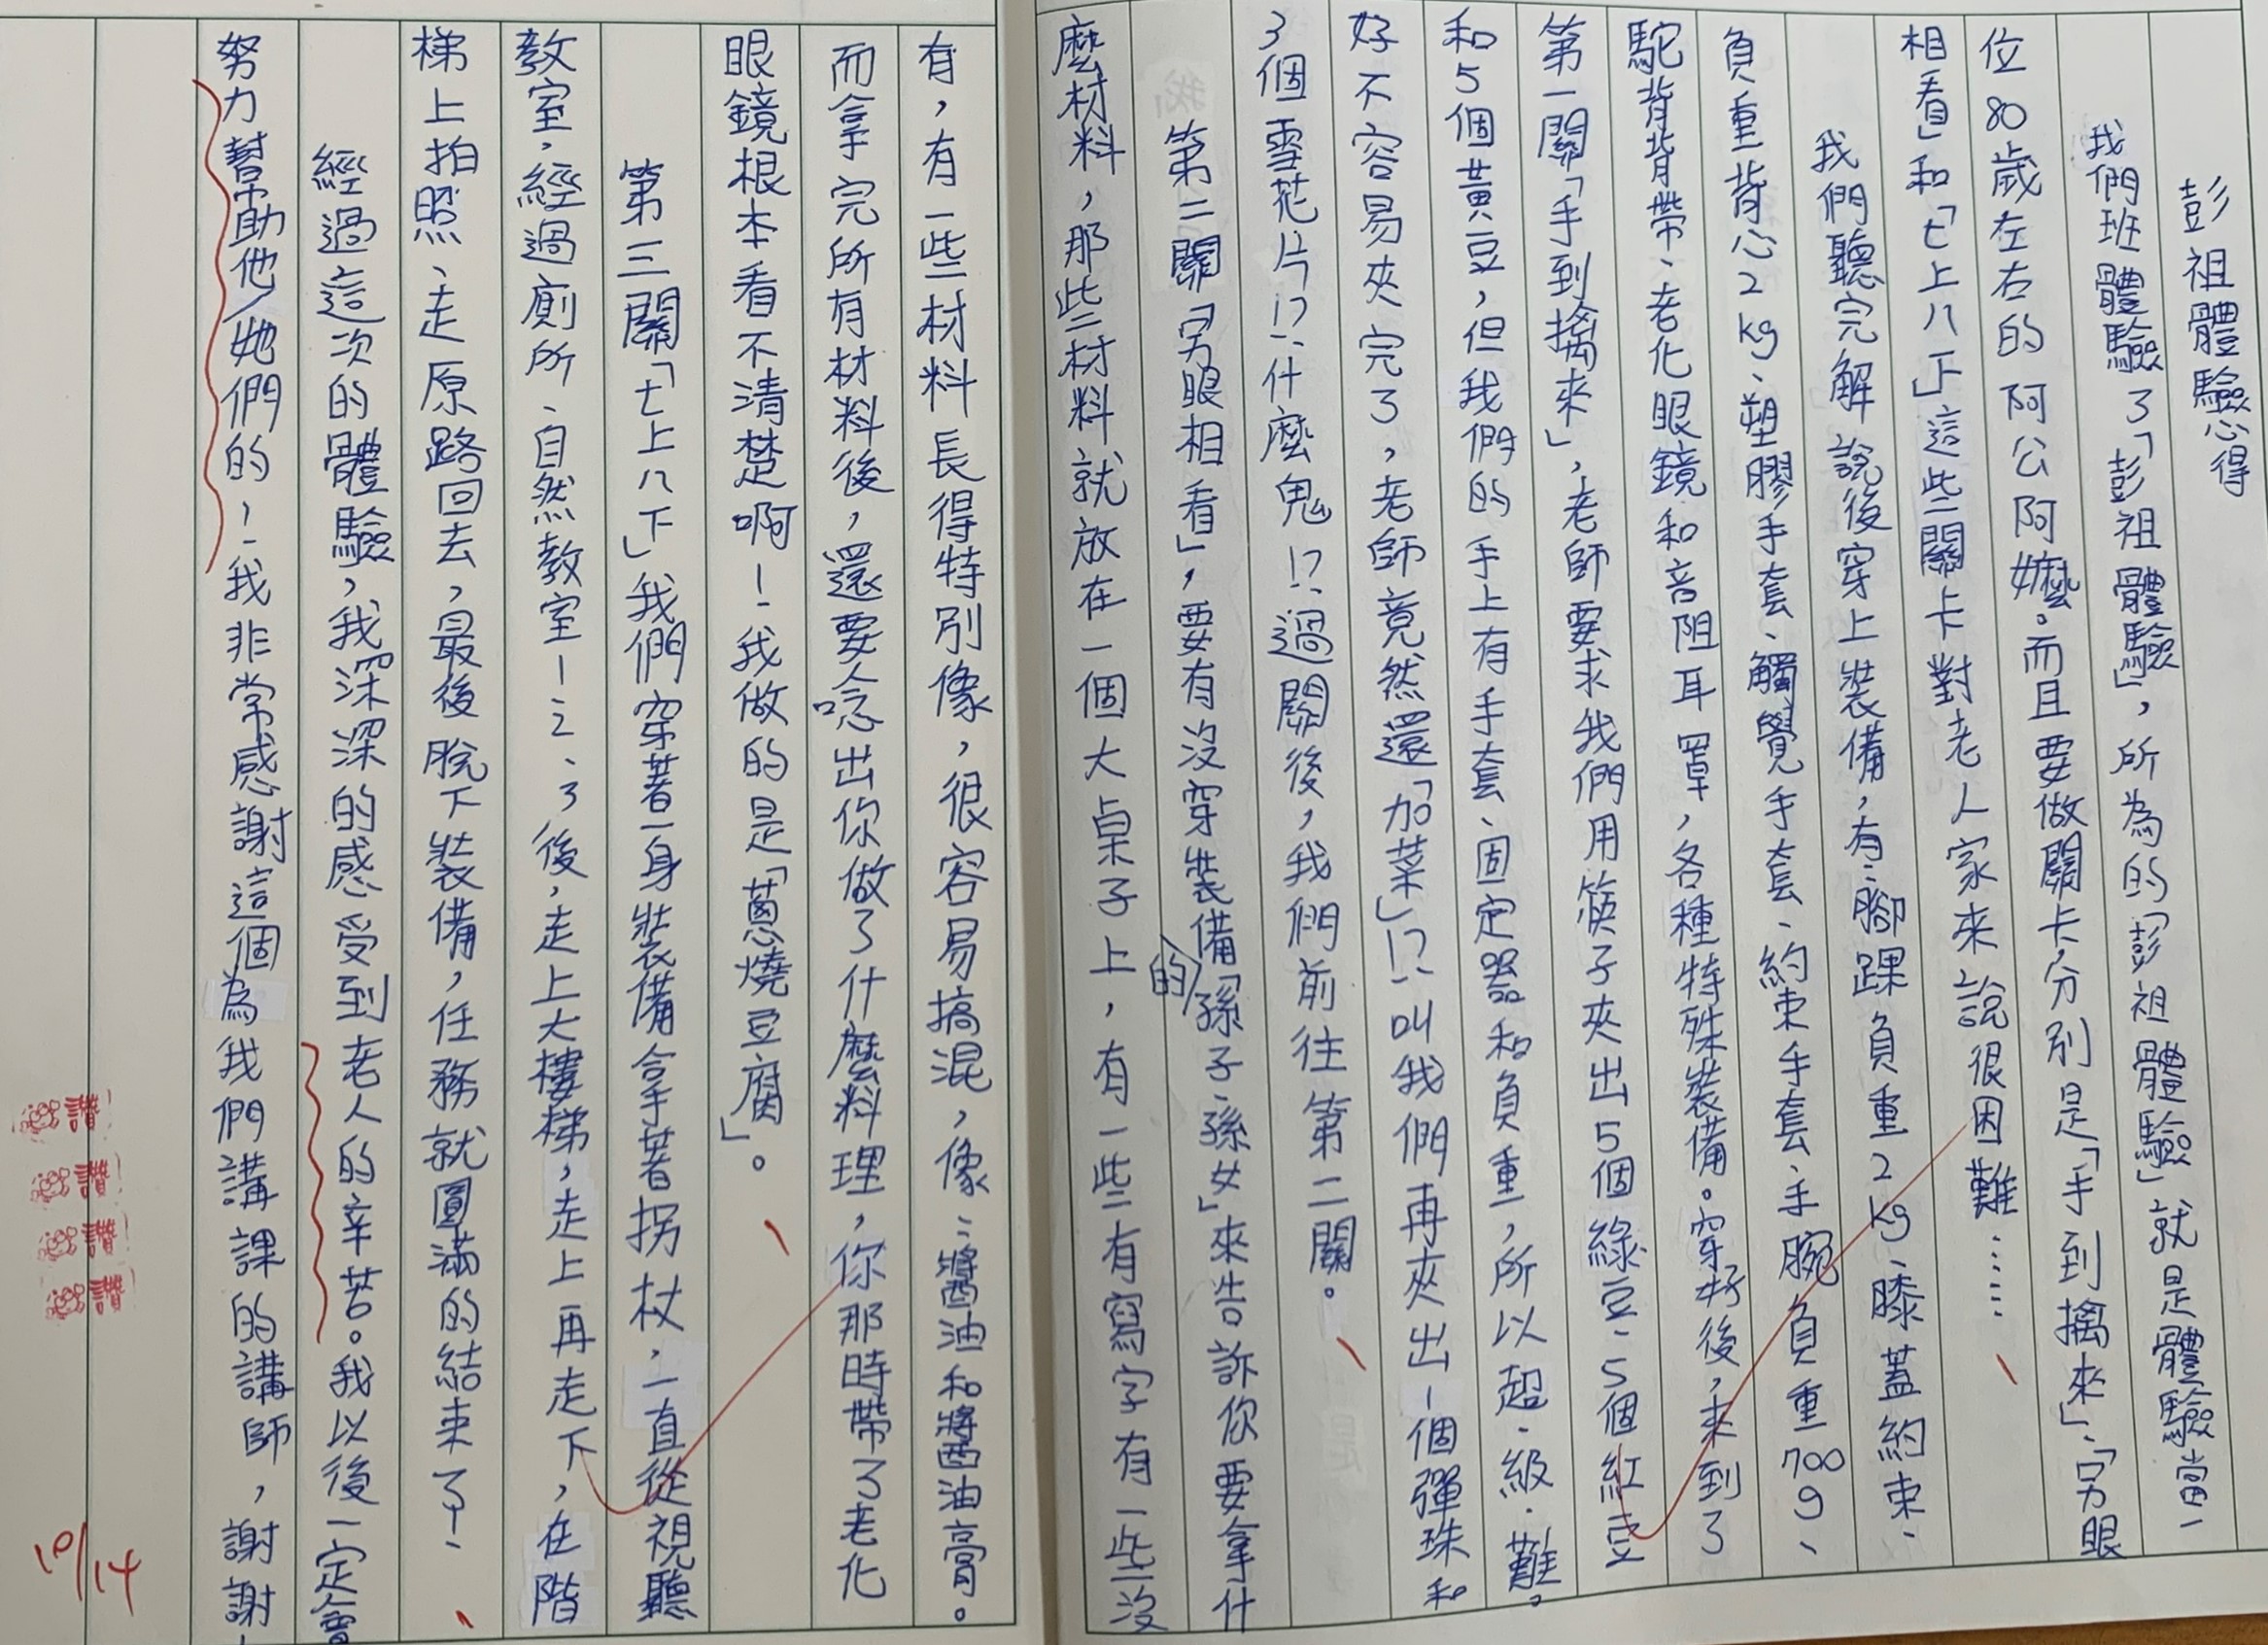 彭祖體驗心得
我們班體驗了「彭祖體驗」，所為的「彭祖體驗」就是體驗當一
位80歲左右的阿公阿嬤。而且要做關卡，分別是「手到擒來」、「另眼
相看」和「七上八下」這些關卡對老人家來說很困難……
我們聽完解說後穿上裝備，有：腳踝負重2kg、膝蓋約束、
負重背心2kg、塑膠手套、觸覺手套、約束手套、手腕負重700g、
駝背背帶、老化眼鏡和音阻耳罩，各種特殊裝備。穿好後，來到了
第一關「手到擒來」，老師要求我們用筷子夾出5個綠豆、5個紅豆
和5個黃豆，但我們的手上有手套、固定器和負重，所以超．級．難。
好不容易夾完了，老師竟然還「加菜」！？叫我們再夾出1個彈珠和
3個雪花片！？什麼鬼！？過關後，我們前往第二關。
第二關「另眼相看」，要有沒穿裝備的「孫子、孫女」來告訴你要拿什
麼材料，那些材料就放在一個大桌子上，有一些有寫字有一些沒
有，有一些材料長得特別像，很容易搞混，像：醬油和醬油膏。
而拿完所有材料後，還要唸出你做了什麼料理，你那時帶了老化
眼鏡根本看不清楚啊！我做的是「蔥燒豆腐」。
第三關「七上八下」我們穿著一身裝備拿著拐杖，一直從視聽
教室，經過廁所、自然教室1、2、3後，走上大樓梯，走上再走下，在階
梯上拍照、走原路回去，最後脫下裝備，任務就圓滿的結束了！
經過這次的體驗，我深深的感受到老人的辛苦。我以後一定會
努力幫助他/她們的！我非常感謝這個為我們講課的講師，謝謝！
讚
讚
讚
讚
10/14